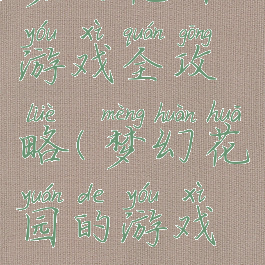 yóu xì quán gōng
游戏全攻
lüè mèng huàn huā
略(梦幻花
yuán de yóu xì
园的游戏